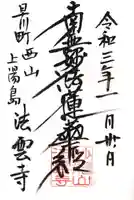 令和三年十一月廿六日
南無妙法蓮華経
早川町西山
上湯島
法雲寺